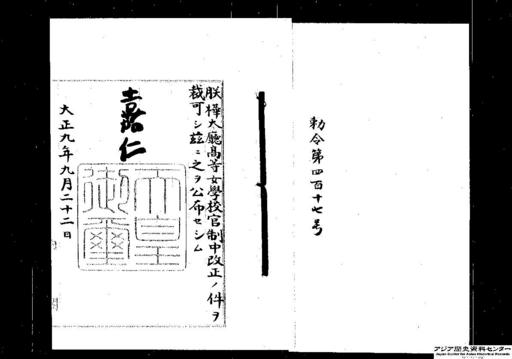 勅令第四百十七号
朕樺太廳高等女學校官制中改正ノ件ヲ
裁可シ茲ニ之ヲ公布セシム
嘉仁
天皇
御璽
大正九年九月二十二日
アジア歴史資料センター
Japan Center for Asian Historical Records